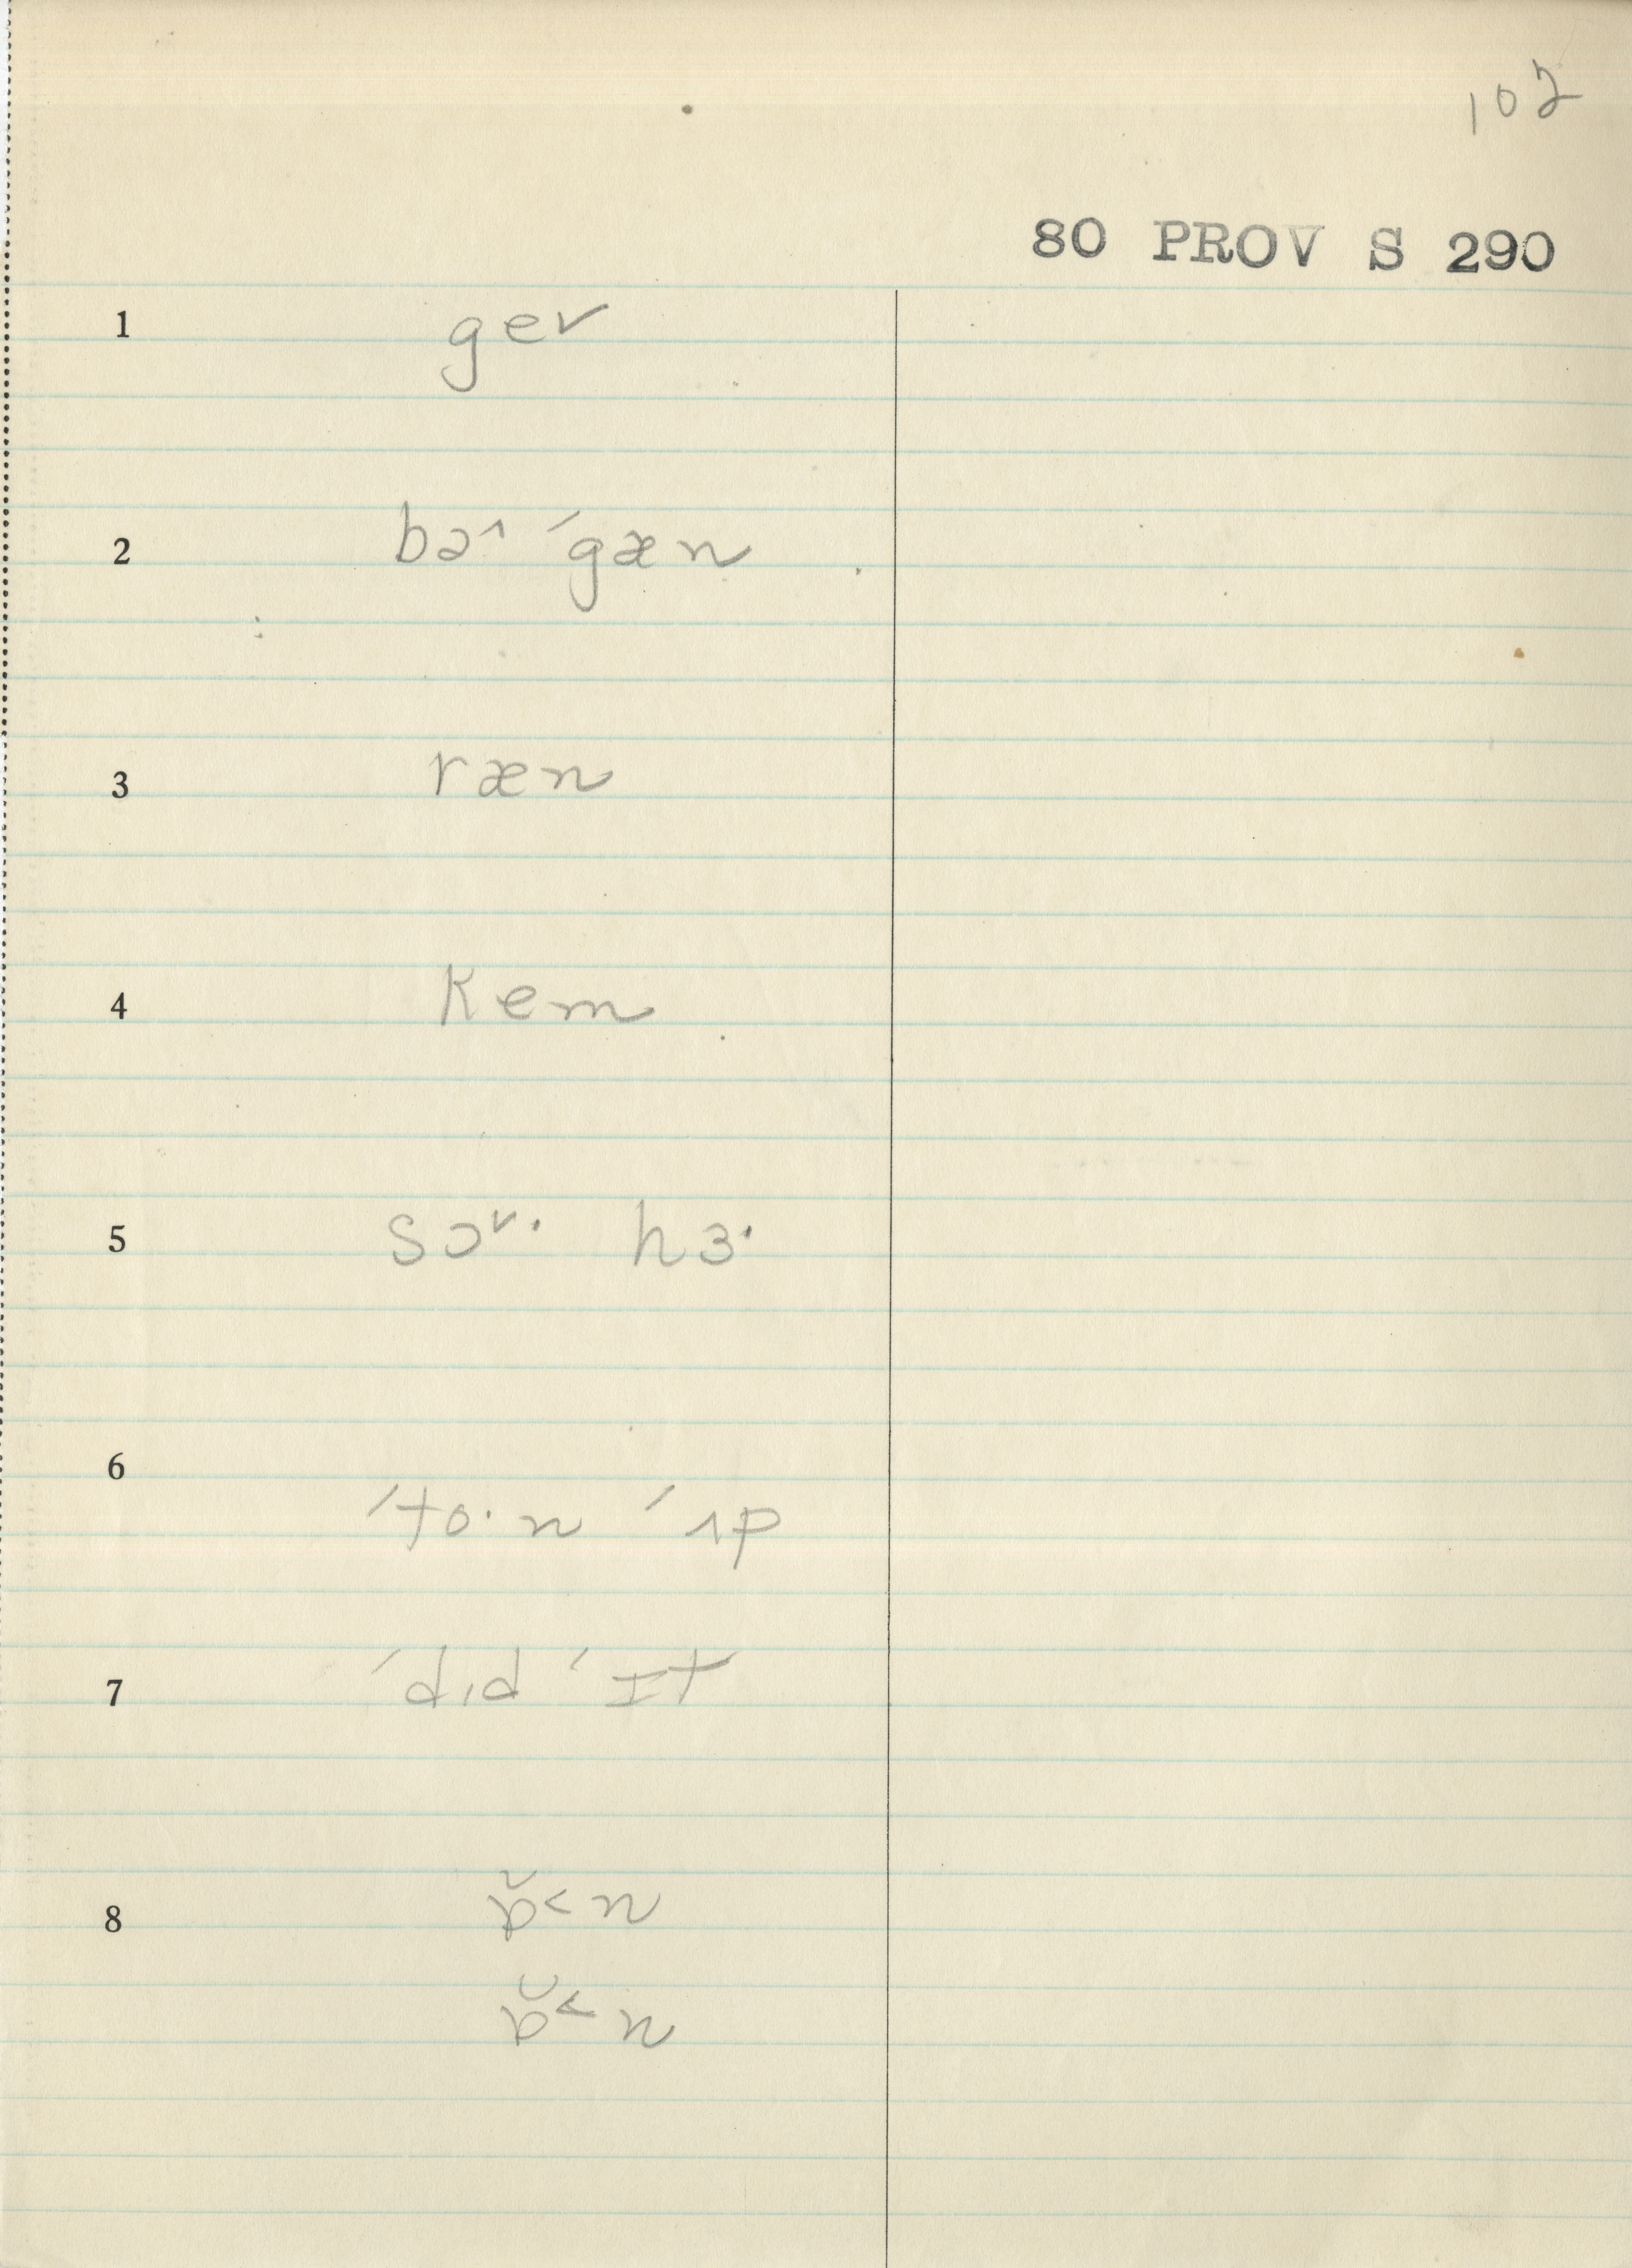 102
80 PROV S 290
1 gev
2 bə^ ´gæn
3 ræn
4 kem
5 sɔᵛ· hɜ·
6 ´to·n ´ʌp
7 ´dɪd ´ɪt
8 ɒ̆< n
ɒ̆< n